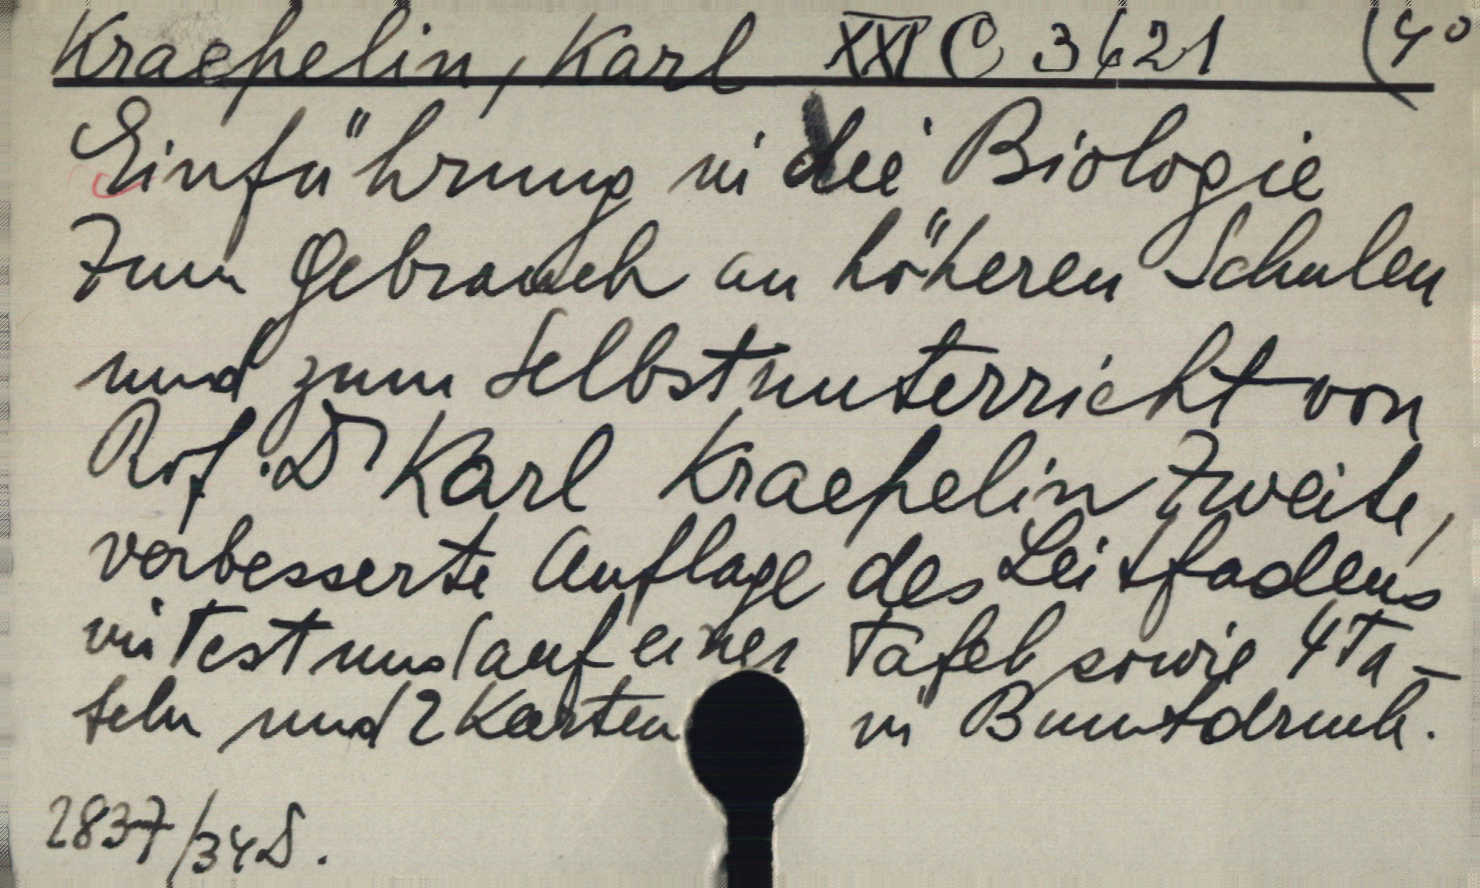 Kraepelin, Karl XXI C 3621 (4°
Einführung in die Biologie
Zum Gebrauch an höheren Schulen
und zum Selbstunterricht von
Prof. Dr Karl Kraepelin Zweite,
verbesserte Auflage des Leitfadens
im Text und auf einer Tafel sowie 4 Ta-
feln und 2 Karten in Buntdruck.
2837/34 D.